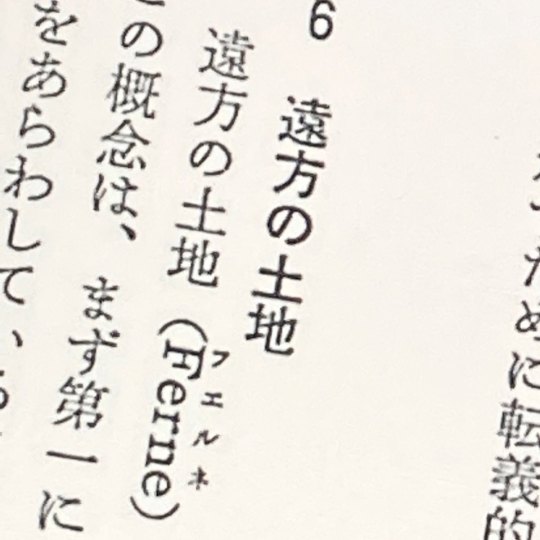 ために転義的
6 遠方の土地
遠方の土地(Ferne)
フェルネ
の概念は、まず第一に
をあらわして、